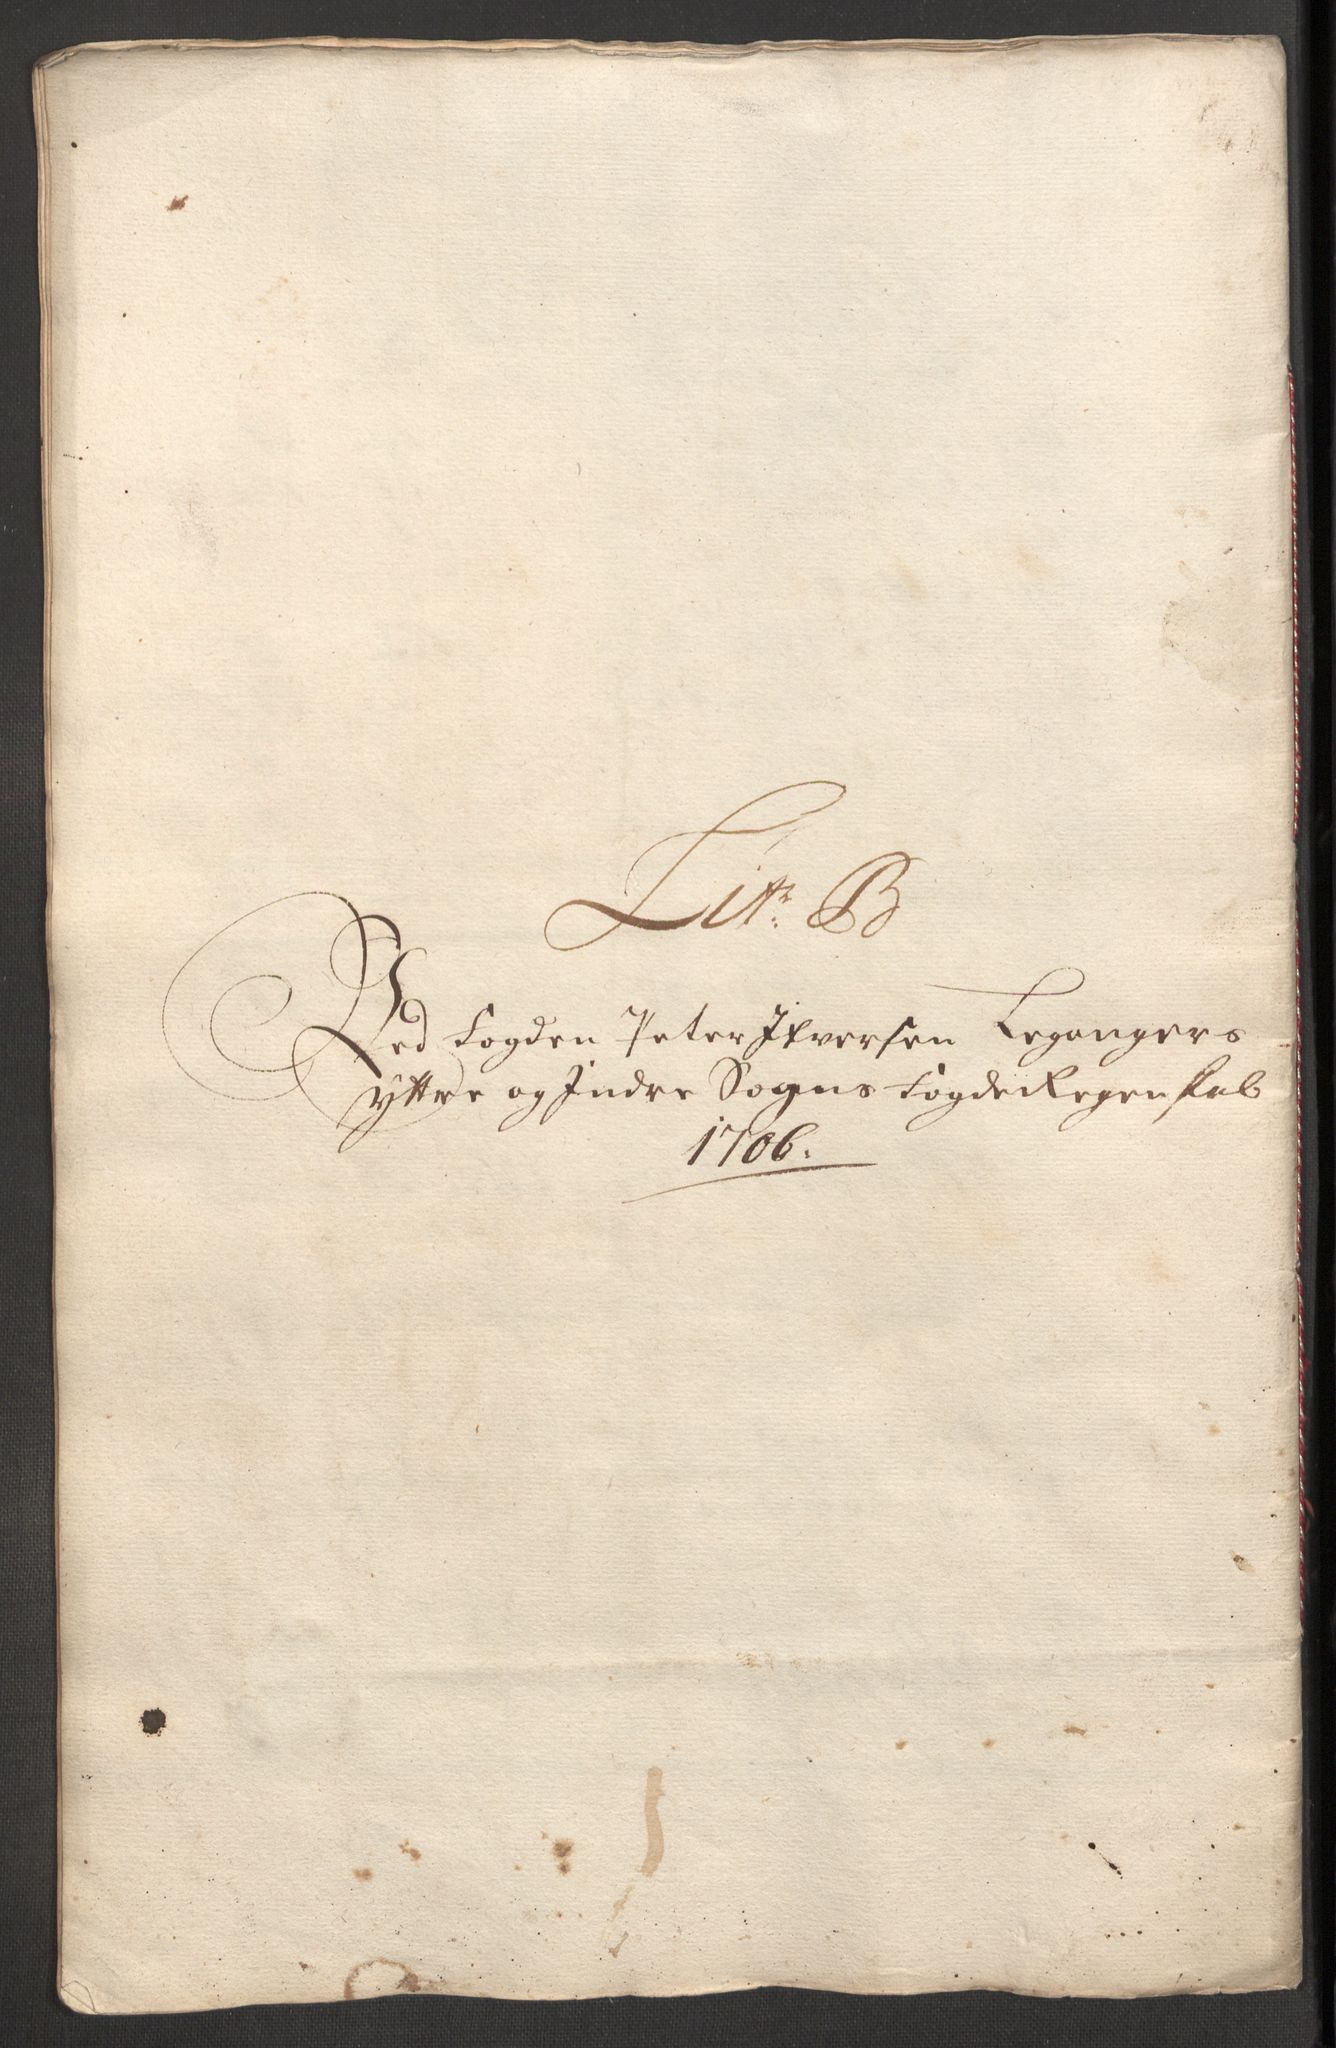 Litr: B
Ved Fogden Peter Ifversen Legangers
yttre og Indre Sogns Fogde Regenskab
1706.